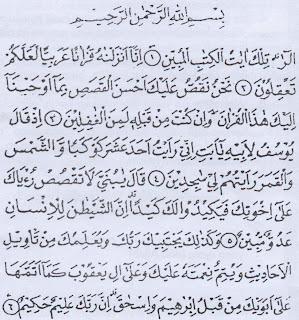 بِسْمِ اللهِ الرَّحْمٰنِ الرَّحِيْمِ
الٓرٰ ۚ تِلْكَ اٰيٰتُ الْكِتٰبِ الْمُبِيْنِ ۝١ اِنَّآ اَنْزَلْنٰهُ قُرْاٰنًا عَرَبِيًّا لَّعَلَّكُمْ
تَعْقِلُوْنَ ۝٢ نَحْنُ نَقُصُّ عَلَيْكَ اَحْسَنَ الْقَصَصِ بِمَآ اَوْحَيْنَآ
اِلَيْكَ هٰذَا الْقُرْاٰنَ وَاِنْ كُنْتَ مِنْ قَبْلِهٖ لَمِنَ الْغٰفِلِيْنَ ۝٣ اِذْ قَالَ
يُوْسُفُ لِاَبِيْهِ يٰٓاَبَتِ اِنِّيْ رَاَيْتُ اَحَدَ عَشَرَ كَوْكَبًا وَّالشَّمْسَ
وَالْقَمَرَ رَاَيْتُهُمْ لِيْ سٰجِدِيْنَ ۝٤ قَالَ يٰبُنَيَّ لَا تَقْصُصْ رُءْيَاكَ
عَلٰٓى اِخْوَتِكَ فَيَكِيْدُوْا لَكَ كَيْدًا ۗ اِنَّ الشَّيْطٰنَ لِلْاِنْسَانِ
عَدُوٌّ مُّبِيْنٌ ۝٥ وَكَذٰلِكَ يَجْتَبِيْكَ رَبُّكَ وَيُعَلِّمُكَ مِنْ تَأْوِيْلِ
الْاَحَادِيْثِ وَيُتِمُّ نِعْمَتَهٗ عَلَيْكَ وَعَلٰٓى اٰلِ يَعْقُوْبَ كَمَآ اَتَمَّهَا
عَلٰٓى اَبَوَيْكَ مِنْ قَبْلُ اِبْرٰهِيْمَ وَاِسْحٰقَ ۗ اِنَّ رَبَّكَ عَلِيْمٌ حَكِيْمٌ ۝٦